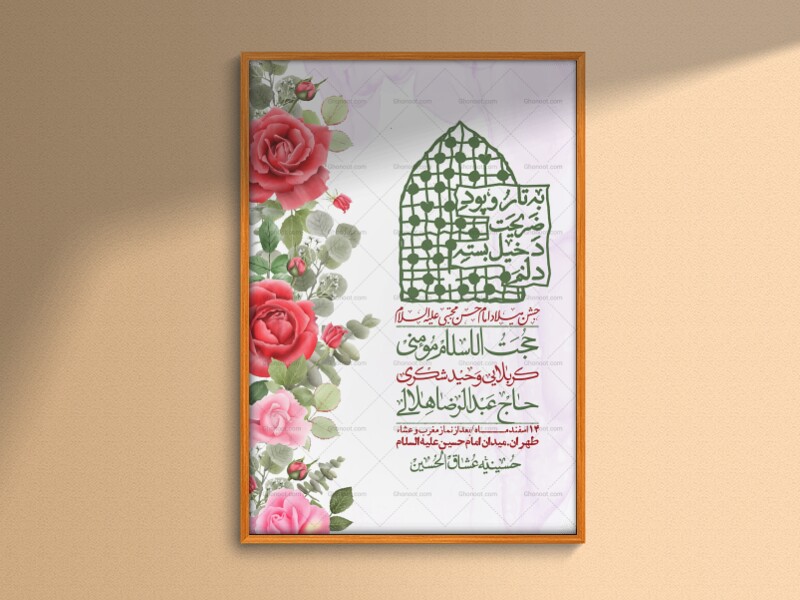 به تار و پود
ضریحت
دخیل بسته
دلم
جشن میلاد امام حسن مجتبی علیه السلام
حجت الاسلام مؤمنی
کربلایی وحید شکری
حاج عبدالرضا هلالی
۱۴ اسفند مــاه / بعد از نماز مغرب و عشاء
طهران، میدان امام حسین علیه السلام
حسینیه عشاق الحسین
Ghonoot.com